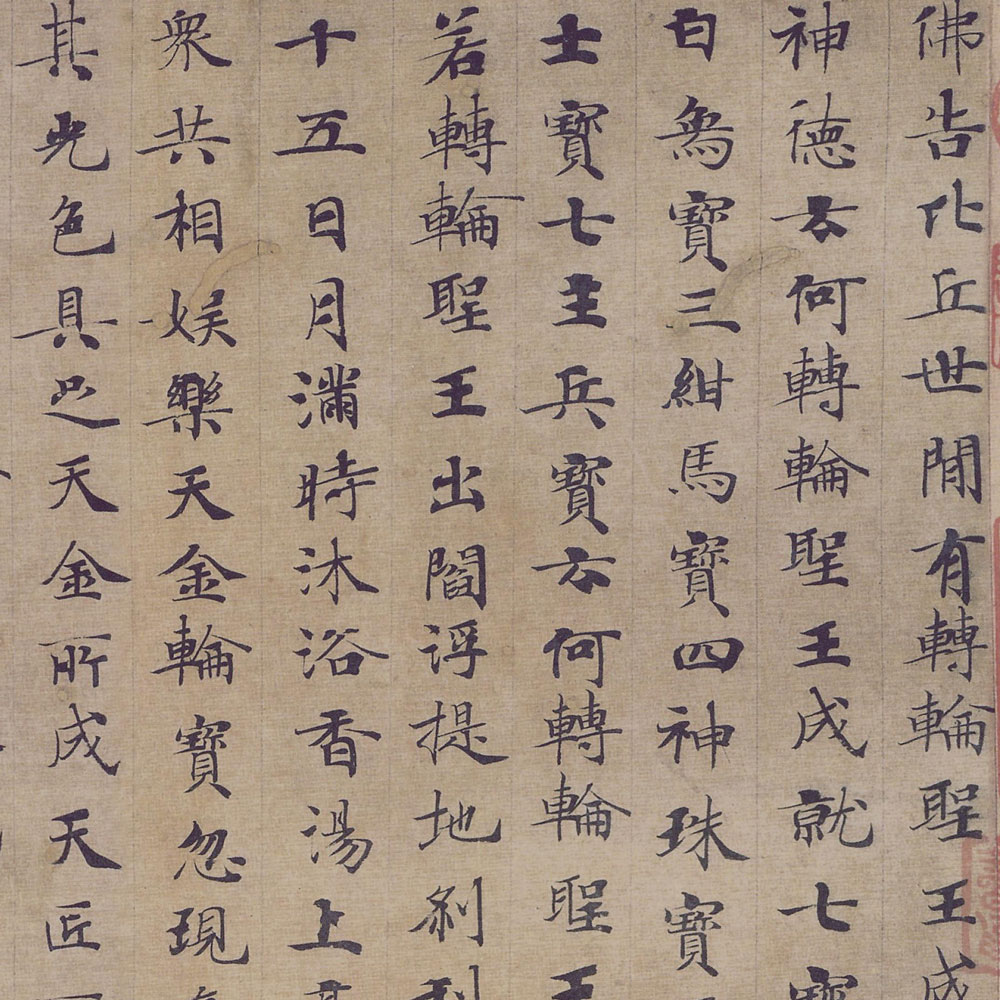 佛告比丘世間有轉輪聖王成
神德云何轉輪聖王成就七寶
白象寶三紺馬寶四神珠寶
士寶七主兵寶云何轉輪聖王
若轉輪聖王出閻浮提地剎利
十五日月滿時沐浴香湯上高
衆共相娛樂天金輪寶忽現
其光色具足天金所成天匠